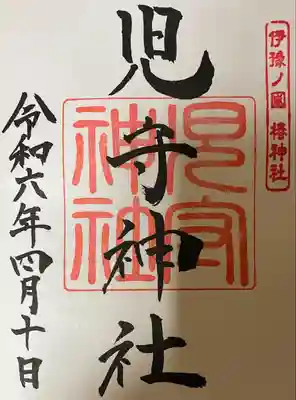 伊豫ノ國 椿神社
児守神社
児守神社
令和六年四月十日